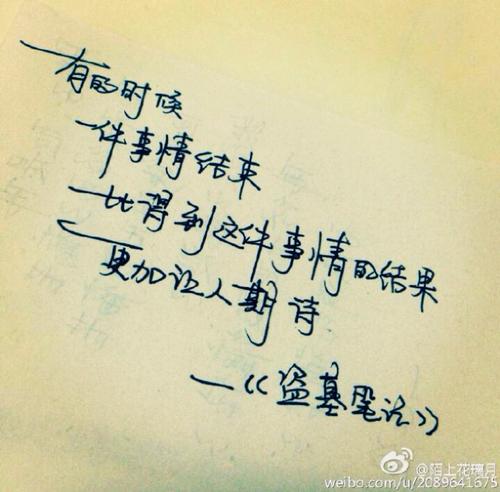 有的时候
一件事情结束
比得到这件事情的结果
更加让人期待
—《盗墓笔记》
@陌上花璃月
weibo.com/u/2089641675